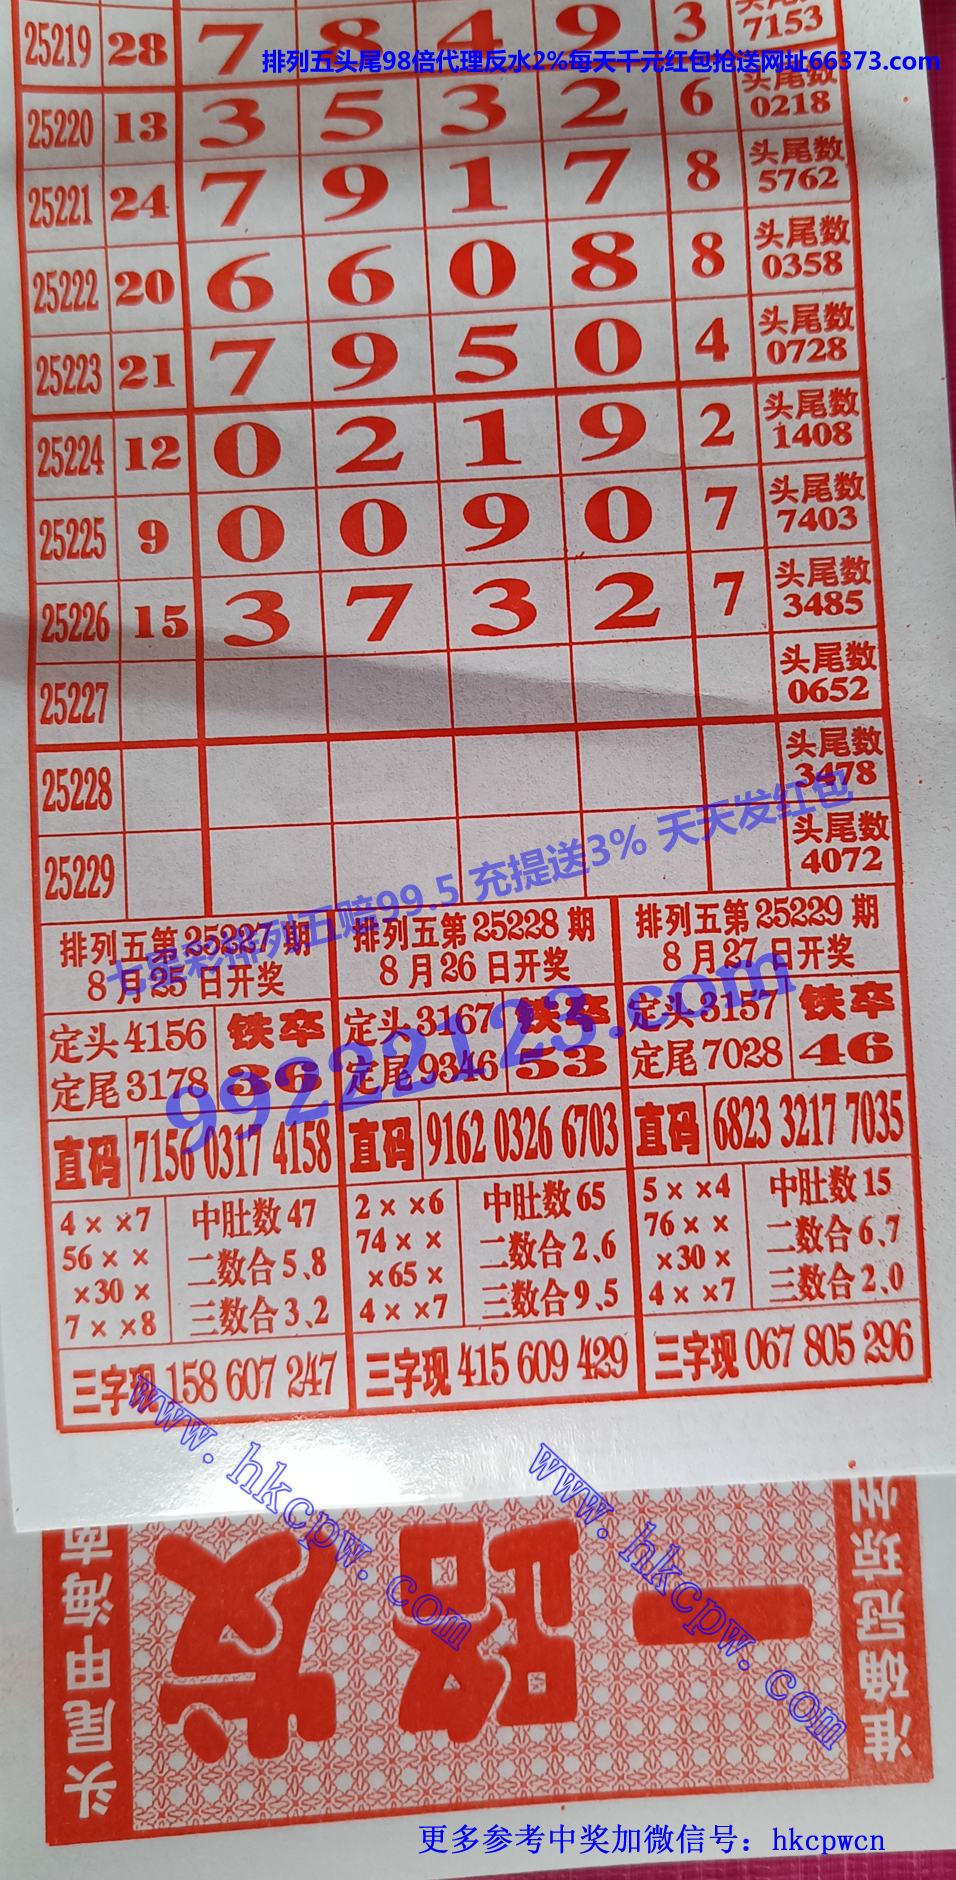 25219 28 7 8 4 9 3 7153
排列五头尾98倍代理反水2%每天千元红包抢送网址66373.com
25220 13 3 5 3 2 6 头尾数 0218
25221 24 7 9 1 7 8 头尾数 5762
25222 20 6 6 0 8 8 头尾数 0358
25223 21 7 9 5 0 4 头尾数 0728
25224 12 0 2 1 9 2 头尾数 1408
25225 9 0 0 9 0 7 头尾数 7403
25226 15 3 7 3 2 7 头尾数 3485
25227 头尾数 0652
25228 头尾数 3478
25229 头尾数 4072
七星彩排列五赔99.5 充提送3% 天天发红包
99222123.com
排列五第25227期
8月25日开奖
定头4156
定尾3178
铁卒
36
直码 7156 0317 4158
4××7
56××
×30×
7××8
中肚数47
二数合5、8
三数合3、2
三字现 158 607 247
排列五第25228期
8月26日开奖
定头3167
定尾9346
铁卒
53
直码 9162 0326 6703
2××6
74××
×65×
4××7
中肚数65
二数合2、6
三数合9、5
三字现 415 609 429
排列五第25229期
8月27日开奖
定头3157
定尾7028
铁卒
46
直码 6823 3217 7035
5××4
76××
×30×
4××7
中肚数15
二数合6、7
三数合2、0
三字现 067 805 296
www.hkcpw.com
www.hkcpw.com
一路发
头尾甲海南
准确冠琼州
更多参考中奖加微信号：hkcpwcn